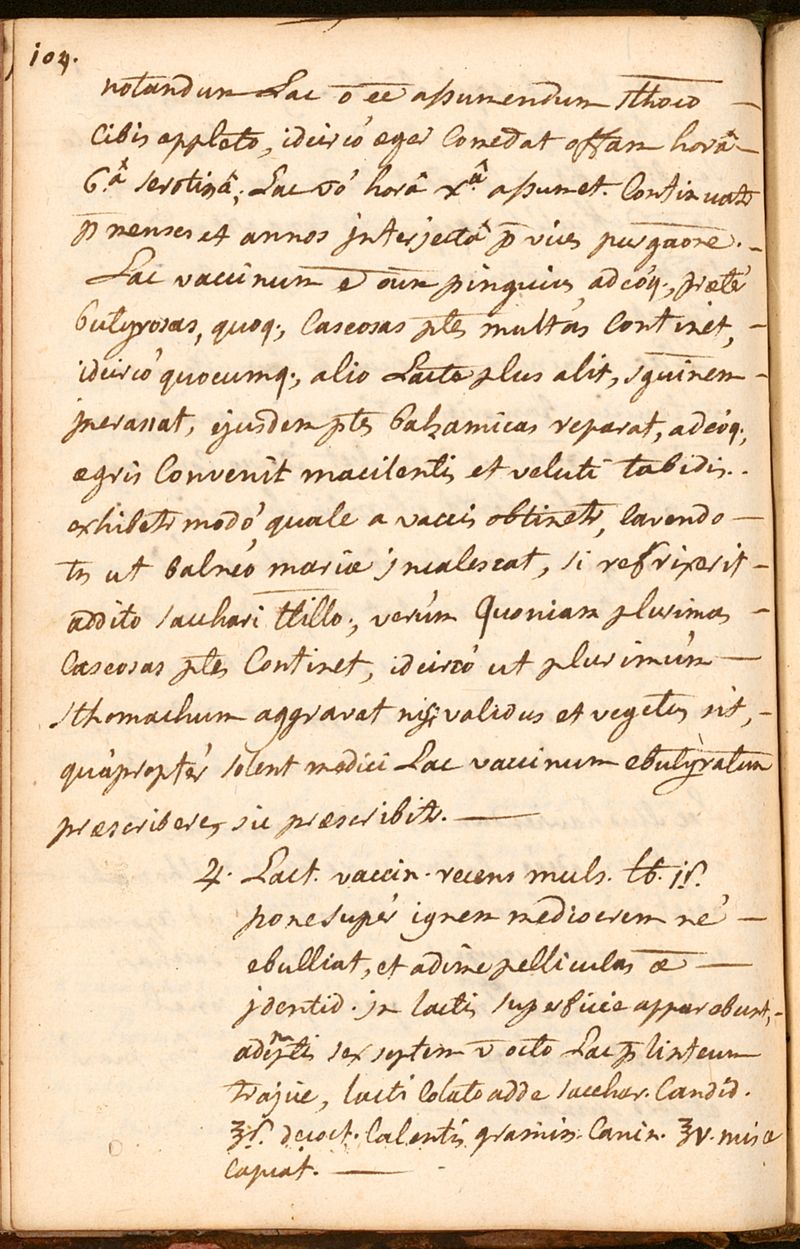 104.
notandum Lac ō ēē assumendum sthoco —
cibis eppleto, idcircò æger Comedat offam horâ —
6.â serotinâ; Lac vō horâ xâ. assumet. Continuatr
p̄ menses et annos jnterjectâ p̄ vices purgaōne. –
Lac vaccinum ē oium pinguius, adeóq;, præter
butyrosas, quoq;, Caseosas ptes multas Continet, –
idcircò quocumq;, alio Lacte plus alit, sguinem –
jncrassat, ejusdem ptes balzamicas reparat, adeóq;,
ægris Convenit macilentis et veluti tabidis..
exhibetr modò, quale a vaccis obtinetr, Cavendo —
tn ut balneo mariæ jncalescat, si refrixerit –
addito sacchari ttillo;, verùm Quoniam plurimas –
Caseosas ptes Continet, idcircò ut plurimùm —
sthomachum aggravat nisi validus et vegetus sit, –
quàpropter solent medici Lac vaccinum ebutyratum
præscribere, sic præscribitr. —
♃. Lact. vaccin. recens muls. lb. jſ.
pone super ignem mediocrem ne —
ebulliat, et adime pelliculas æ —
jdentid. jn lactis superficie apparebunt, –
ademptis sex septem v̄ octo Lac p̄ linteum
trajice, lacti Colato adde sacchar. Candid.
ʒſ. decoct. Calentis graminis Canin. ʒv. misce
Capiat. —